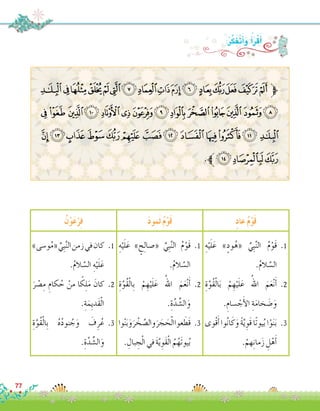 أَقْرَأُ وَأَتَفَكَّرُ
﴿ أَلَمْ تَرَ كَيْفَ فَعَلَ رَبُّكَ بِعَادٍ ٦ إِرَمَ ذَاتِ ٱلْعِمَادِ ٧ ٱلَّتِي لَمْ يُخْلَقْ مِثْلُهَا فِي ٱلْبِلَـٰدِ
٨ وَثَمُودَ ٱلَّذِينَ جَابُوا۟ ٱلصَّخْرَ بِٱلْوَادِ ٩ وَفِرْعَوْنَ ذِي ٱلْأَوْتَادِ ١٠ ٱلَّذِينَ طَغَوْا۟ فِي
ٱلْبِلَـٰدِ ١١ فَأَكْثَرُوا۟ فِيهَا ٱلْفَسَادَ ١٢ فَصَبَّ عَلَيْهِمْ رَبُّكَ سَوْطَ عَذَابٍ ١٣ إِنَّ
رَبَّكَ لَبِٱلْمِرْصَادِ ١٤ ﴾.
قَوْمُ عادٍ
قَوْمُ ثمودَ
فرْعَوْنُ
1. قَوْمُ النَّبِيِّ «هودٍ» عَلَيْهِ السّلامُ.
2. أَنْعَمَ اللهُ عَلَيْهِمْ بِالْقُوَّةِ وَضَخامَةِ الأجْسامِ.
3. بَنَوْا بُيوتًا قَوِيَّةً وَكانُوا أَقْوى أَهْلِ زمانِهِمْ.
1. قَوْمُ النَّبِيِّ «صالِحٍ» عَلَيْهِ السّلامُ.
2. أَنْعَمَ اللهُ عَلَيْهِمْ بِالْقُوَّةِ وَالشِّدَّةِ.
3. قَطَعوا الْحَجَرَ وَالصُّخورَ وَبَنَوْا بُيوتَهُمُ الْقَوِيَّةَ في الْجِبالِ.
1. كان في زمنِ النَّبِيِّ «موسى» عَلَيْهِ السّلامُ.
2. كانَ مَلِكًا مِنْ حُكامِ مِصْرَ الْقَديمَةِ.
3. عُرِفَ وَجُنودُهُ بِالْقُوَّةِ وَالشِّدَّةِ.
77